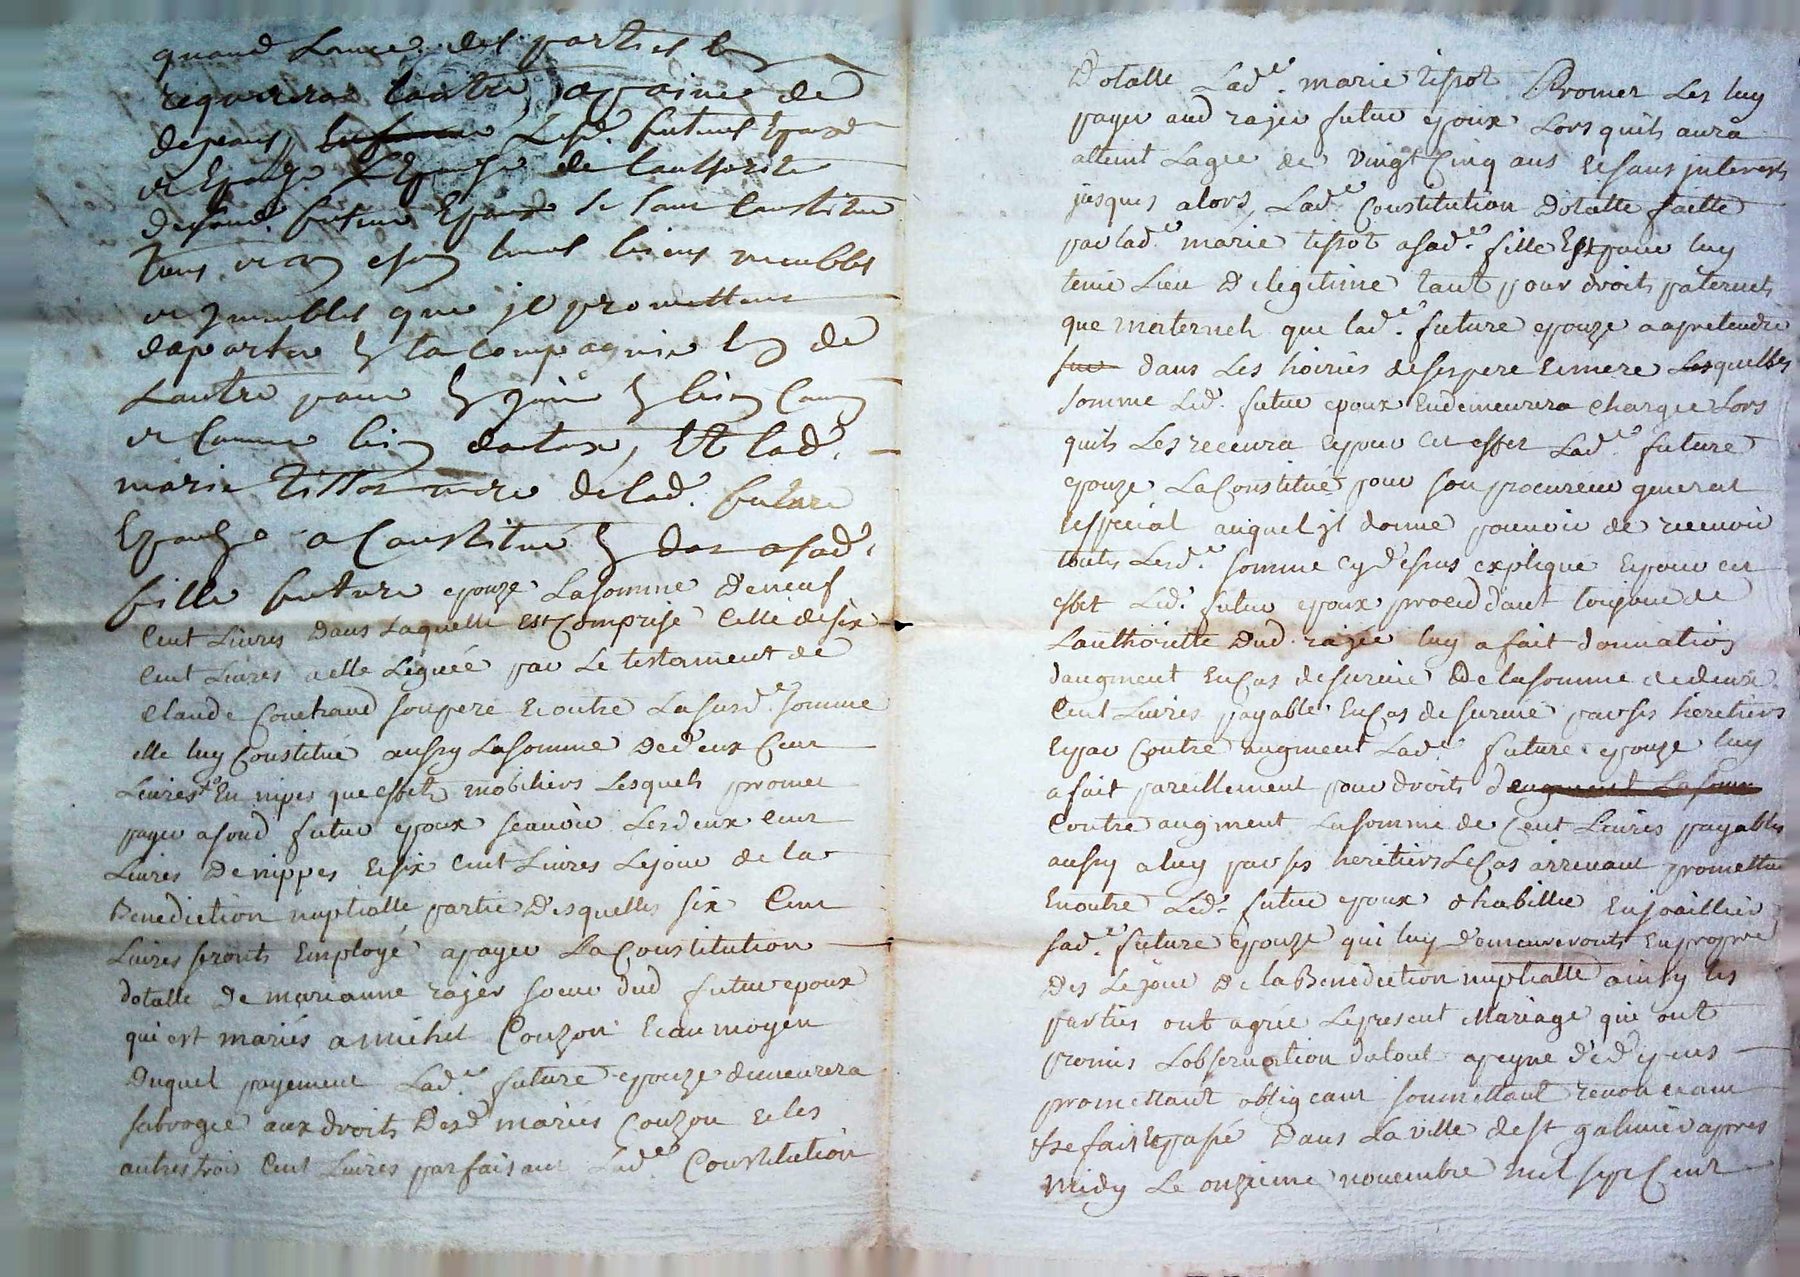 quand Lune des parties en
requerra lautre, a paine de
depens, Lesd. futurs Epoux
et Epouze L'Epouze de lauthorité
desond. futur Epoux se sont Constitué
tous et un chacun leurs biens meubles
et jmmeubles que jl promettent
daporter en la Compagnie lun de
Lautre pour en jouir en bien Commun
et Comme bien dotaux, Et lad.e
marie tissot mere de lad. future
Epouze a Constitué en dot a sad.e
fille future epouze La somme De neuf
Cent Livres Dans Laquelle est Comprise Celle de six
Cent Livres a elle Leguée par Le testament de
Claude Couchaud son pere Et outre La susd.e somme
elle luy Constitué aussy La somme De deux Cent
Livres En nipes que effets mobiliers Lesquels promet
payer a sond futur epoux scavoir Les deux Cent
Livres De nippes Et six Cent Livres Le jour de la
Benediction nuptialle partie Desquelles six Cent
Livres seronts Employé a payer La Constitution
dotalle De marianne rajer soeur dud futur epoux
qui est mariés a michel Couzon Et au moyen
Duquel payement Lad.e future epouze demeurera
subrogée aux droits Desd mariés Couzon et les
autres trois Cent Livres parfaisant Lad.e Constitution
Dotalle Lad.e marie tissot Promet Les luy
payer aud rajer futur epoux Lors quils aura
atteint Lagee de vingt Cinq ans Et sans jnterests
jusques alors, Lad.e Constitution Dotalle faitte
par lad.e marie tissot a sad.e fille Est pour luy
tenir Lieu De legitime tant pour droits paternels
que maternels que lad.e future epouze a a pretendre
dans Les hoiries de ses pere Et mere Lesquelles
somme Led. futur epoux En demeurera Chargée Lors
quils Les recevra Et pour cet effet Lad.e future
epouze La Constitué pour son procureur general
Et special auquel jl donne pouvoir de recevoir
toutes Lesd.e somme Cy dessus expliqué Et pour cet
effet Led. futur epoux procedant toujour de
Lauthoritté Dud. rajer luy a fait donnation
d'augment En Cas de survie De la somme de deux
Cent Livres payable En Cas de survie par ses heretiers
Et par Contre augment Lad.e future epouze luy
a fait pareillement pour droits d'augment La somme
Contre augment La somme de Cent Livres payables
aussy a luy par ses heretiers Le Cas arrivant promettant
En outre Led. futur epoux d'habiller En joaillier
sad.e future epouze qui luy demeureronts En propre
Des Le jour De la Benediction nuptialle ainsy les
parties ont agrée Le present Mariage qui ont
promis L'observation du tout a peyne De Depens
promettant obligeant soumettant renonceant
fait Et passé Dans La ville de st galmier apres
midy Le onzieme novembre mil sept Cent